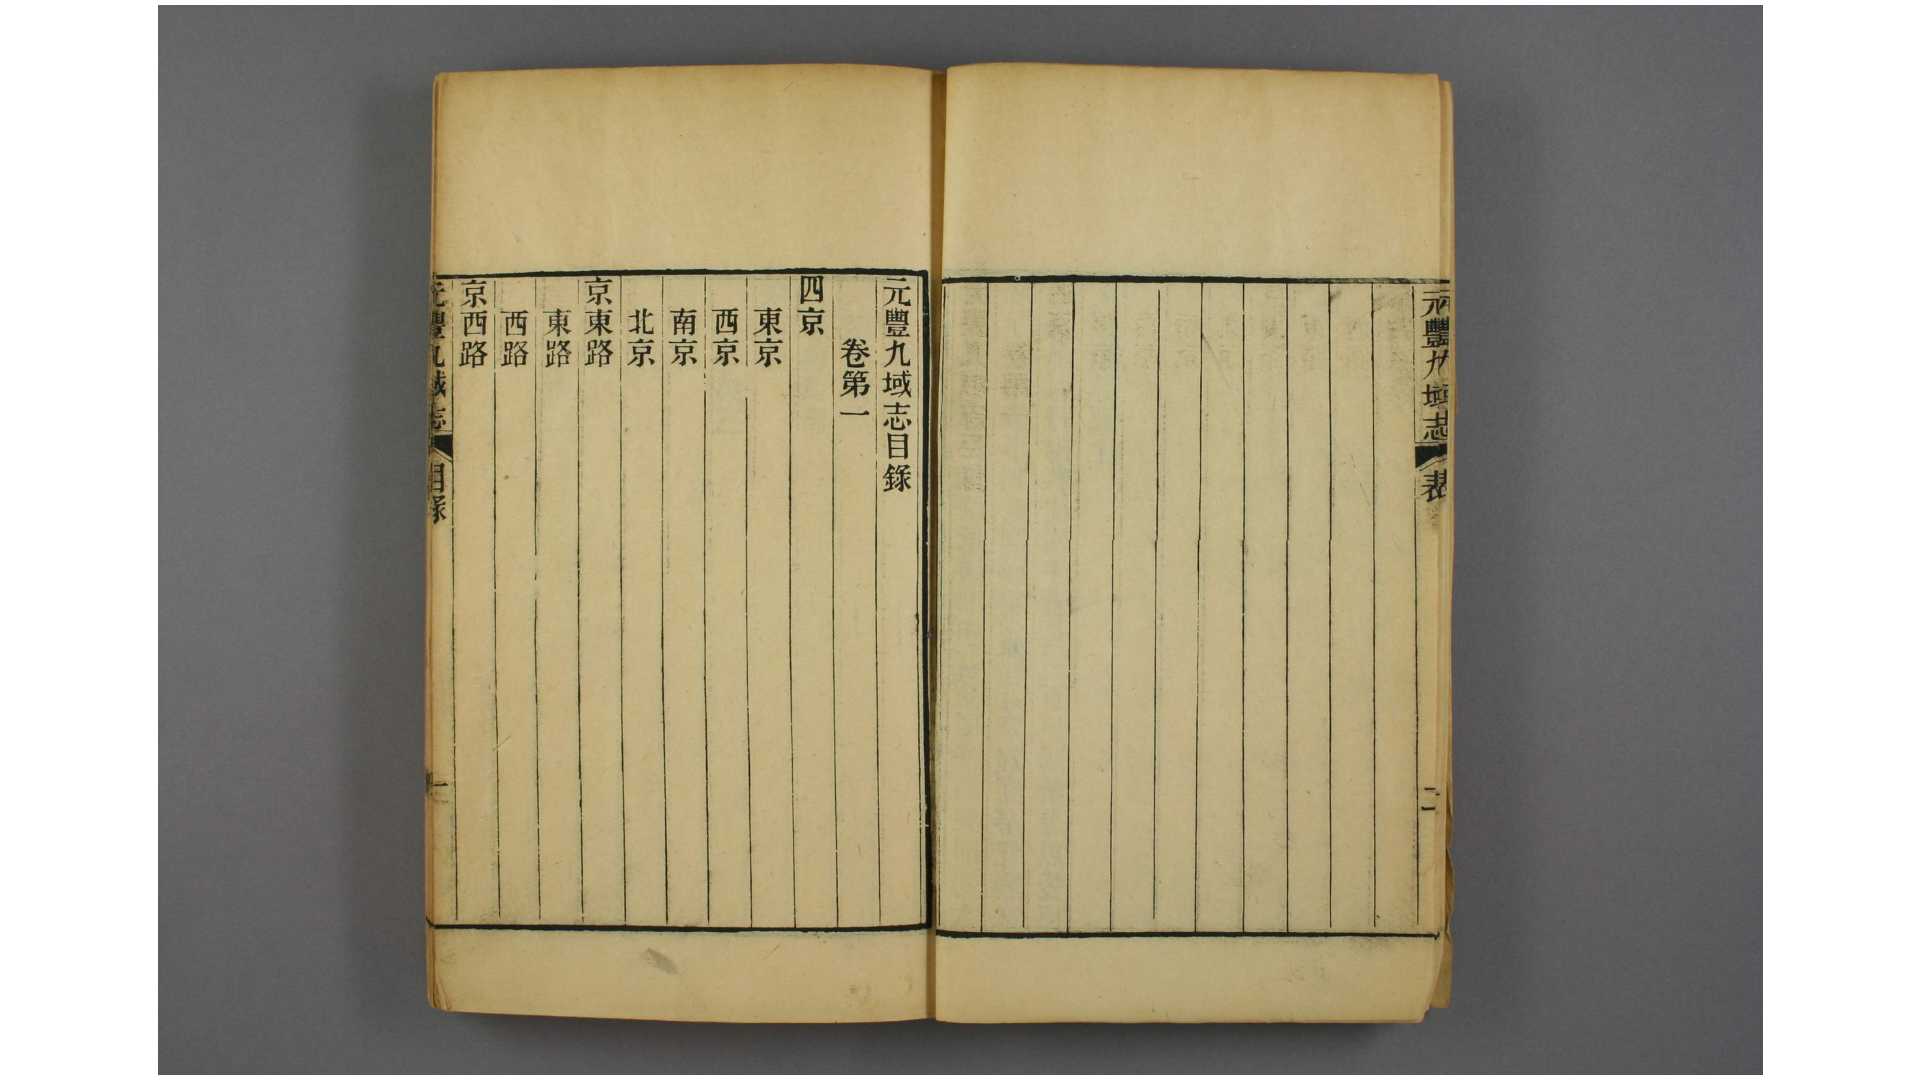 元豐九域志
表
二
元豐九域志目錄
卷第一
四京
東京
西京
南京
北京
京東路
東路
西路
京西路
元豐九域志
目錄
一